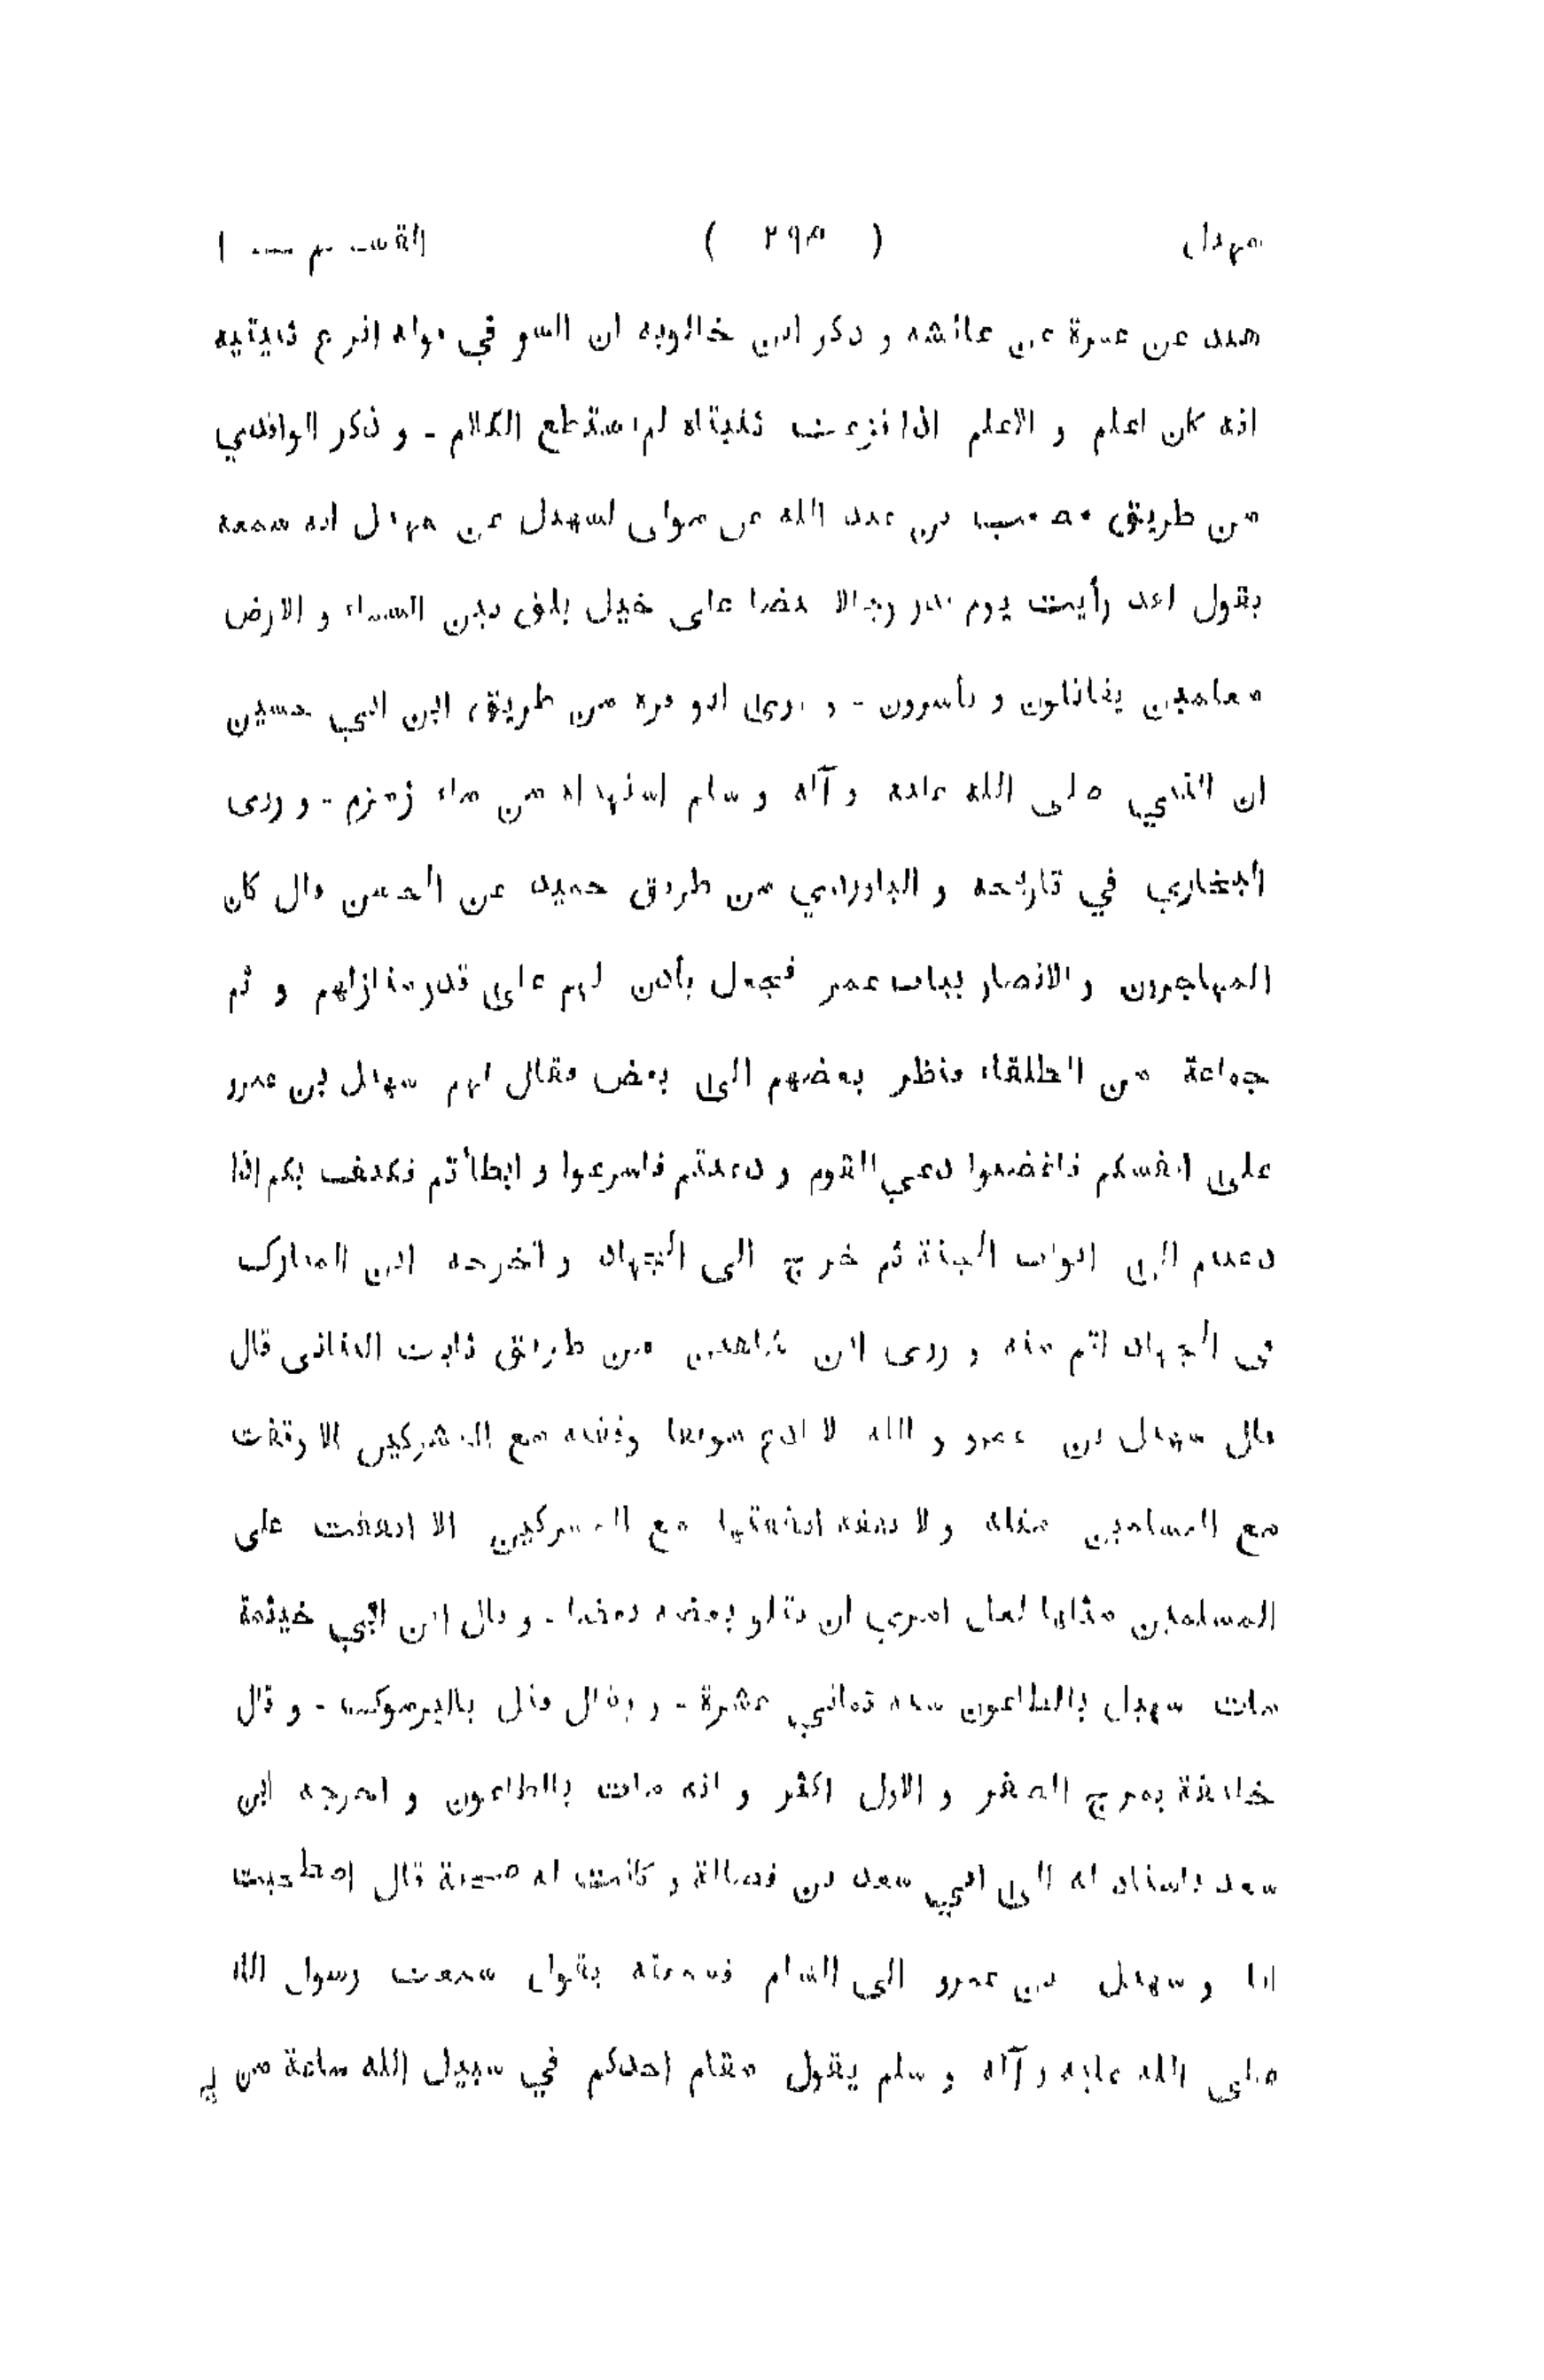 سهيل ( ٢٩٣ ) القسم ١
هند عن عمرة عن عائشة و ذكر ابن خالويه ان السر في قوله انزع ثنيتيه
انه كان اعلم و الاعلم اذا نزعت ثنيتاه لم يستطع الكلام - و ذكر الواقدي
من طريق مصعب بن عبد الله عن مولى لسهيل عن سهيل انه سمعه
يقول لقد رأيت يوم بدر رجالا بيضا على خيل بلق بين السماء و الارض
معلمين يقاتلون و يأسرون - و روى ابو قرة من طريق ابن ابي حسين
ان النبي صلى الله عليه و آله و سلم استهداه من ماء زمزم - و روى
البخاري في تاريخه و الباوردي من طريق حميد عن الحسن قال كان
المهاجرون و الانصار بباب عمر فجعل يأذن لهم على قدر منازلهم و ثم
جماعة من الطلقاء فنظر بعضهم الى بعض فقال لهم سهيل بن عمرو
على انفسكم فاغضبوا دعي القوم و دعيتم فاسرعوا و ابطأتم فكيف بكم اذا
دعيتم الى ابواب الجنة ثم خرج الى الجهاد و اخرجه ابن المبارك
في الجهاد اتم منه و روى ابن شاهين من طريق ثابت البناني قال
قال سهيل بن عمرو و الله لا ادع موقفا وقفته مع المشركين الا وقفت
مع المسلمين مثله و لا نفقة انفقتها مع المشركين الا انفقت على
المسلمين مثلها لعل امري ان يتلو بعضه بعضا - و قال ابن ابي خيثمة
مات سهيل بالطاعون سنة ثماني عشرة - و يقال قتل باليرموك - و قال
خليفة بمرج الصفر و الاول اكثر و انه مات بالطاعون و اخرجه ابن
سعد باسناد له الى ابي سعد بن فضالة و كانت له صحبة قال اصطحبت
انا و سهيل بن عمرو الى الشام فسمعته يقول سمعت رسول الله
صلى الله عليه و آله و سلم يقول مقام احدكم في سبيل الله ساعة من